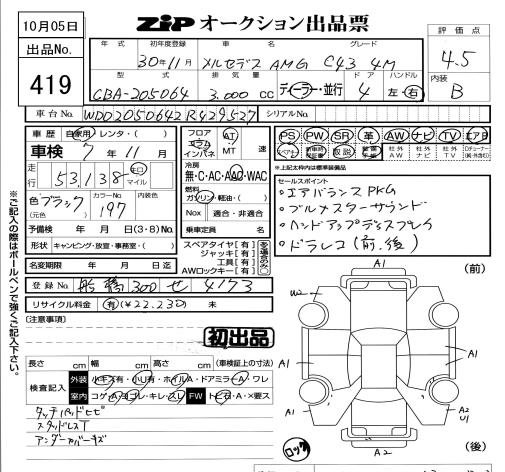 10月05日
出品No.
419
ZIP オークション出品票
評価点
4.5
内装
B
年式 初年度登録 車名 グレード
30年11月 メルセデス AMG C43 4M
型式 排気量 ドア ハンドル
CBA-205064 3.000 CC ディーラー・並行 4 左・右
車台No. WDD2050642R429527 シリアルNo.
車歴 自家用・レンタ・( )
車検 7年 11月
走行 53,138 キロ マイル
色 ブラック (元色) カラーNo. 197
予備検 年 月 日(3・8)No.
形状 キャンピング・放宣・事務室・( )
名変期限 年 月 日迄
フロア コラム インパネ AT MT 速
冷房
無・C・AC・AAC・WAC
燃料
ガソリン・軽油・( )
Nox 適合・非適合
乗車定員 名
スペアタイヤ[有]
ジャッキ[有]
工具[有]
AWロックキー[有]
PS PW SR 革 AW ナビ TV エアB
取説 社外AW 社外ナビ 社外TV
*上記太枠内は標準装備品
セールスポイント
・エアバランスPKG
・ブルメスターサウンド
・ハンドアップディスプレイ
・ドラレコ(前.後)
登録No. 船橋 300 せ 4173
リサイクル料金 有(¥22.230) 未
〔注意事項〕
初出品
長さ cm 幅 cm 高さ cm (車検証上の寸法)
検査記入
外装 小キズ有・小U有・ホイルA・ドアミラーA・ワレ
室内 コゲA・ヨゴレ・キレ・スレ FW トビ石・A・×要ス
タッチパッドヒビ
スタッドレスT
アンダーカバーキズ
※ご記入の際はボールペンで強くご記入下さい。
A1
(前)
W2
A1
A1
A1
A2
U1
ロック
A2
(後)